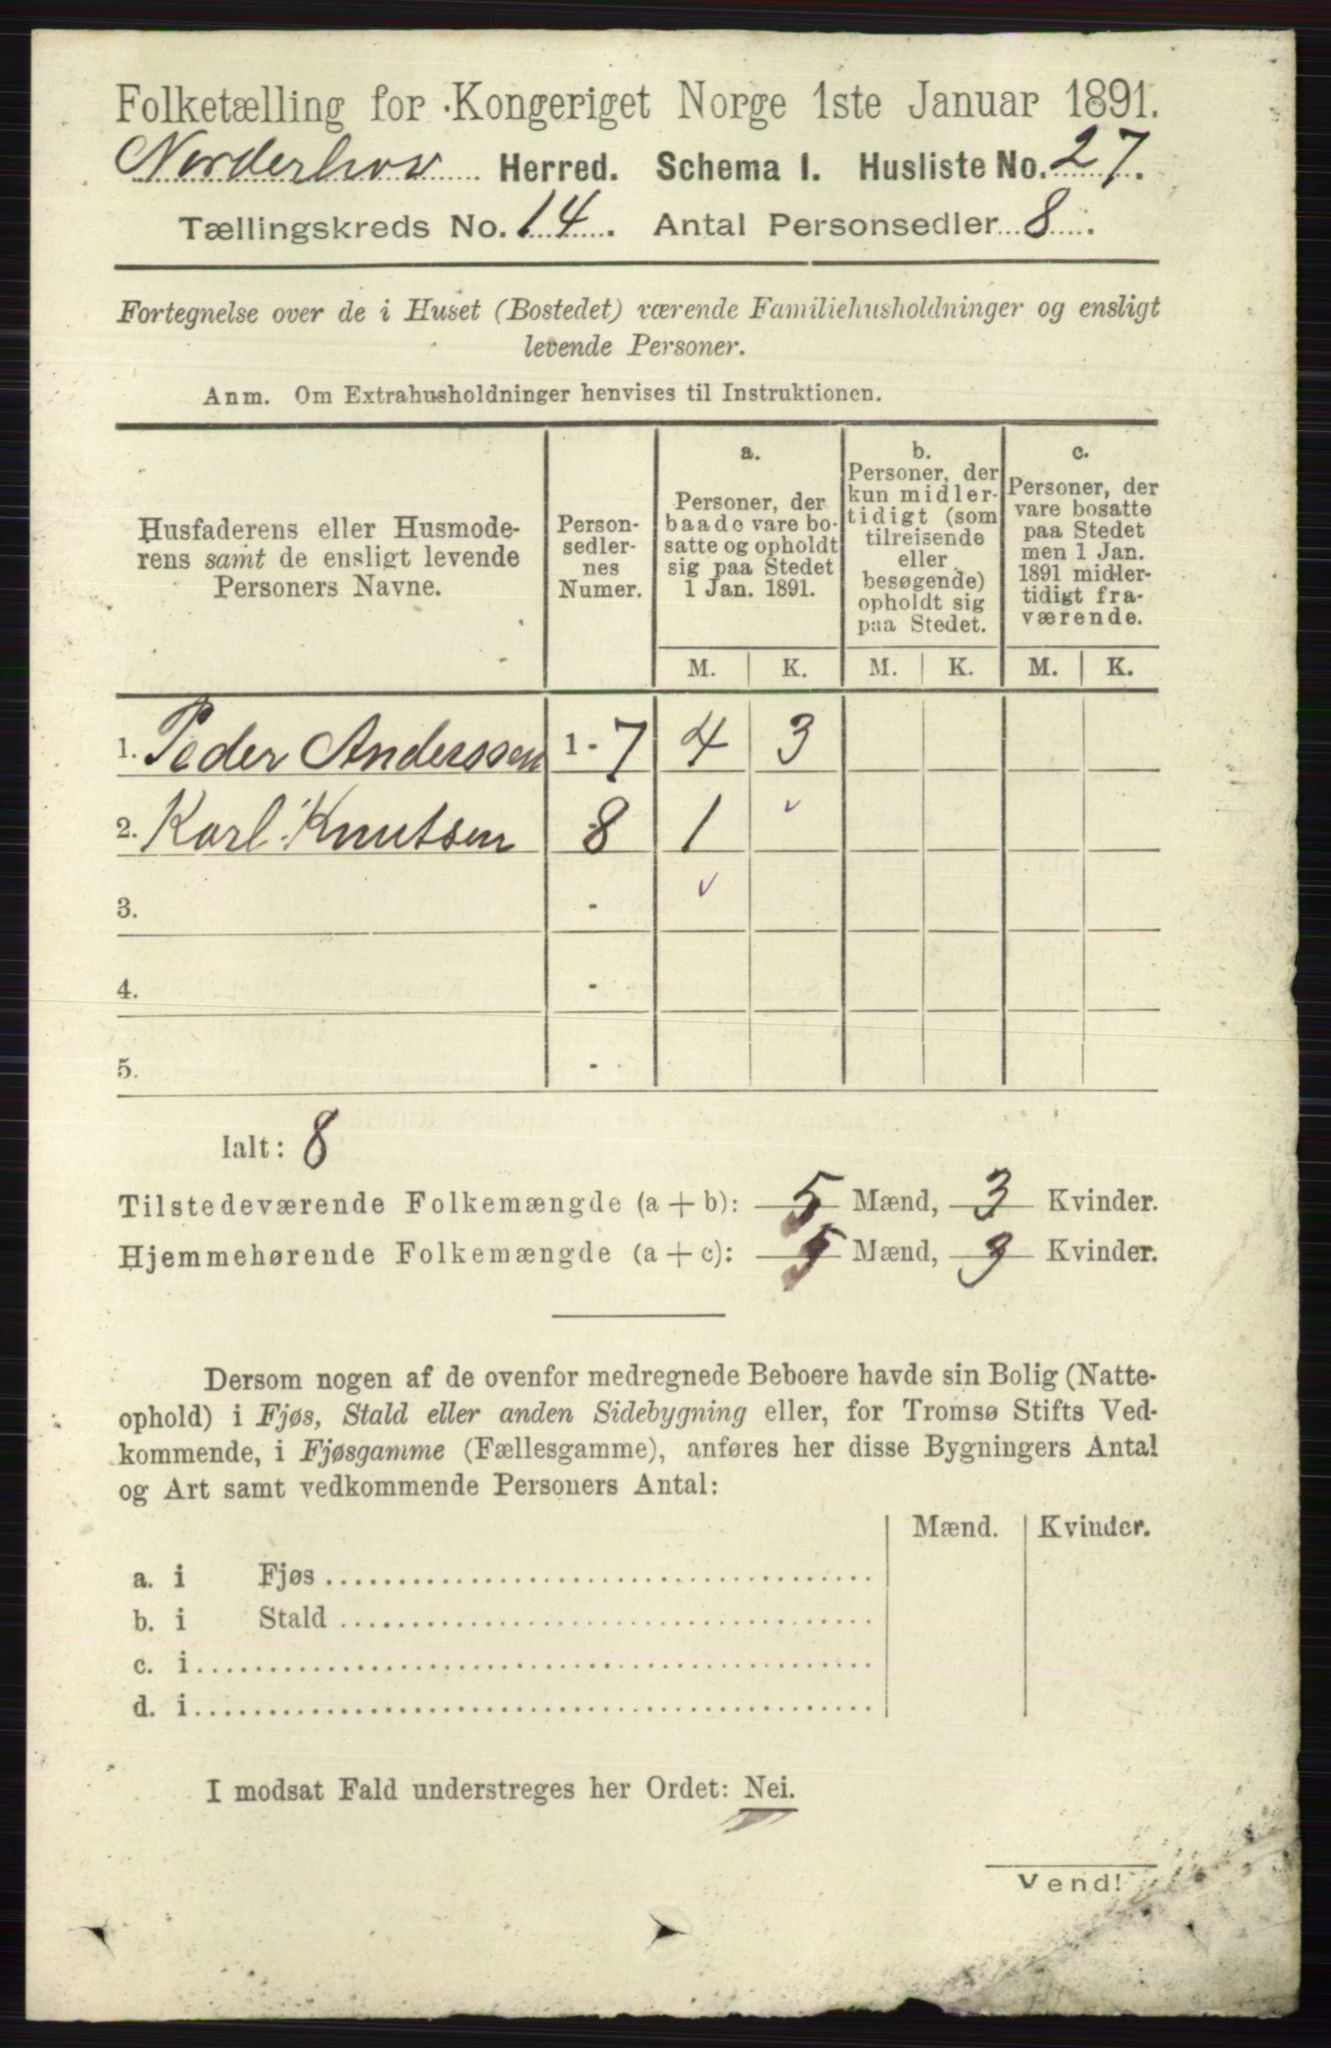 Folketælling for Kongeriget Norge 1ste Januar 1891.
Norderhov Herred. Schema I. Husliste No. 27.
Tællingskreds No. 14. Antal Personsedler 8.
Fortegnelse over de i Huset (Bostedet) værende Familiehusholdninger og ensligt
levende Personer.
Anm. Om Extrahusholdninger henvises til Instruktionen.
Husfaderens eller Husmode-
rens samt de ensligt levende
Personers Navne.
Person-
sedler-
nes
Numer.
a.
Personer, der
baade vare bo-
satte og opholdt
sig paa Stedet
1 Jan. 1891.
b.
Personer, der
kun midler-
tidigt (som
tilreisende
eller
besøgende)
opholdt sig
paa Stedet.
c.
Personer, der
vare bosatte
paa Stedet
men 1 Jan.
1891 midler-
tidigt fra-
værende.
M. K. M. K. M. K.
1. Peder Anderssen 1 - 7 4 3
2. Karl Knutsen 8 1
3. -
4. -
5. -
Ialt: 8
Tilstedeværende Folkemængde (a + b): 5 Mænd, 3 Kvinder.
Hjemmehørende Folkemængde (a + c): 5 Mænd, 3 Kvinder.
Dersom nogen af de ovenfor medregnede Beboere havde sin Bolig (Natte-
ophold) i Fjøs, Stald eller anden Sidebygning eller, for Tromsø Stifts Ved-
kommende, i Fjøsgamme (Fællesgamme), anføres her disse Bygningers Antal
og Art samt vedkommende Personers Antal:
Mænd. Kvinder.
a. i Fjøs
b. i Stald
c. i
d. i
I modsat Fald understreges her Ordet: Nei.
Vend!